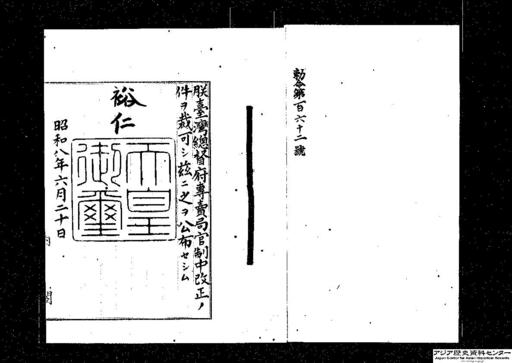 勅令第百六十二號
朕臺灣總督府專賣局官制中改正ノ
件ヲ裁可シ茲ニ之ヲ公布セシム
裕仁
天皇
御璽
昭和八年六月二十日
内閣
アジア歴史資料センター
Japan Center for Asian Historical Records